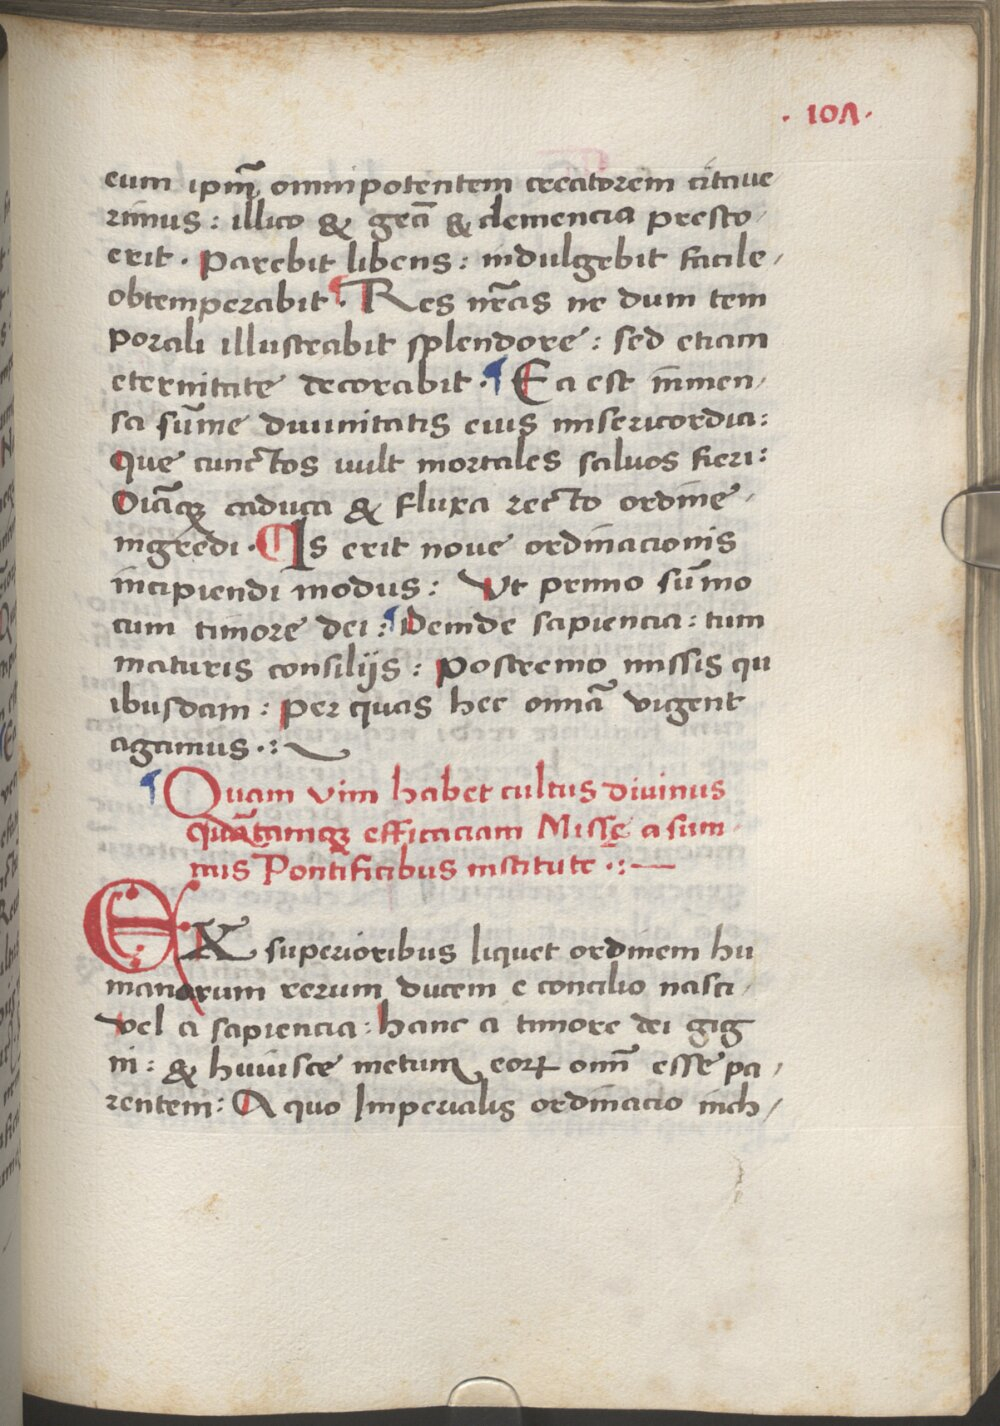 · 107 ·
eum ipm̄ omnipotentem creatorem citaue
rimus : illico & gr̄cā & clemencia presto /
erit . Parebit libens : indulgebit facile /
obtemperabit . ¶ Res nr̄as ne dum tem
porali illustrabit splendore : sed etiam
eternitate decorabit . ¶ Ea est inmen /
sa sum̄e diuinitatis eius misericordia :
Que cunctos uult mortales saluos fieri :
Oīaqꝫ caduca & fluxa recto ordine /
ingredi . ¶ Is erit noue ordinacionis
incipiendi modus : Vt primo sum̄o
cum timore dei : ¶ Deinde sapiencia : tum
maturis consilijs : Postremo missis qu
ibusdam : per quas hec omnā vigent
agamus . : ~
¶ Quam vim habet cultus diuinus
quātamqꝫ efficaciam Missę a sum /
mis Pontificibus institute . : —
EX superioribus liquet ordinem hu
manarum rerum ducem e concilio nasci /
vel a sapiencia : hanc a timore dei gig
ni : & huiusce metum eoꝝ om̄ esse pa /
rentem : A quo Imperialis ordinacio inch /